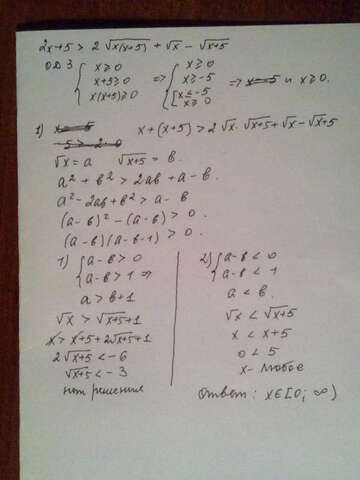 2x+5 > 2√x(x+5) + √x − √x+5
ОДЗ { x≥0 x+5≥0 x(x+5)≥0 ⇒ { x≥0 x≥−5 [x≤−5 x≥0 ⇒ x=−5 и x≥0.
1) x=−5 x+(x+5)>2√x·√x+5+√x−√x+5
−5 > 2·0
√x = a √x+5 = в.
a²+в² > 2aв + a−в.
a²−2aв+в² > a−в
(a−в)²−(a−в) > 0.
(a−в)(a−в−1) > 0.
1) { a−в>0
a−в>1 ⇒
a > в+1
√x > √x+5+1
x > x+5+2√x+5+1
2√x+5 < −6
√x+5 < −3
нет решения
2) { a−в<0
a−в<1
a < в.
√x < √x+5
x < x+5
0 < 5
x− любое
Ответ: x∈[0; ∞)